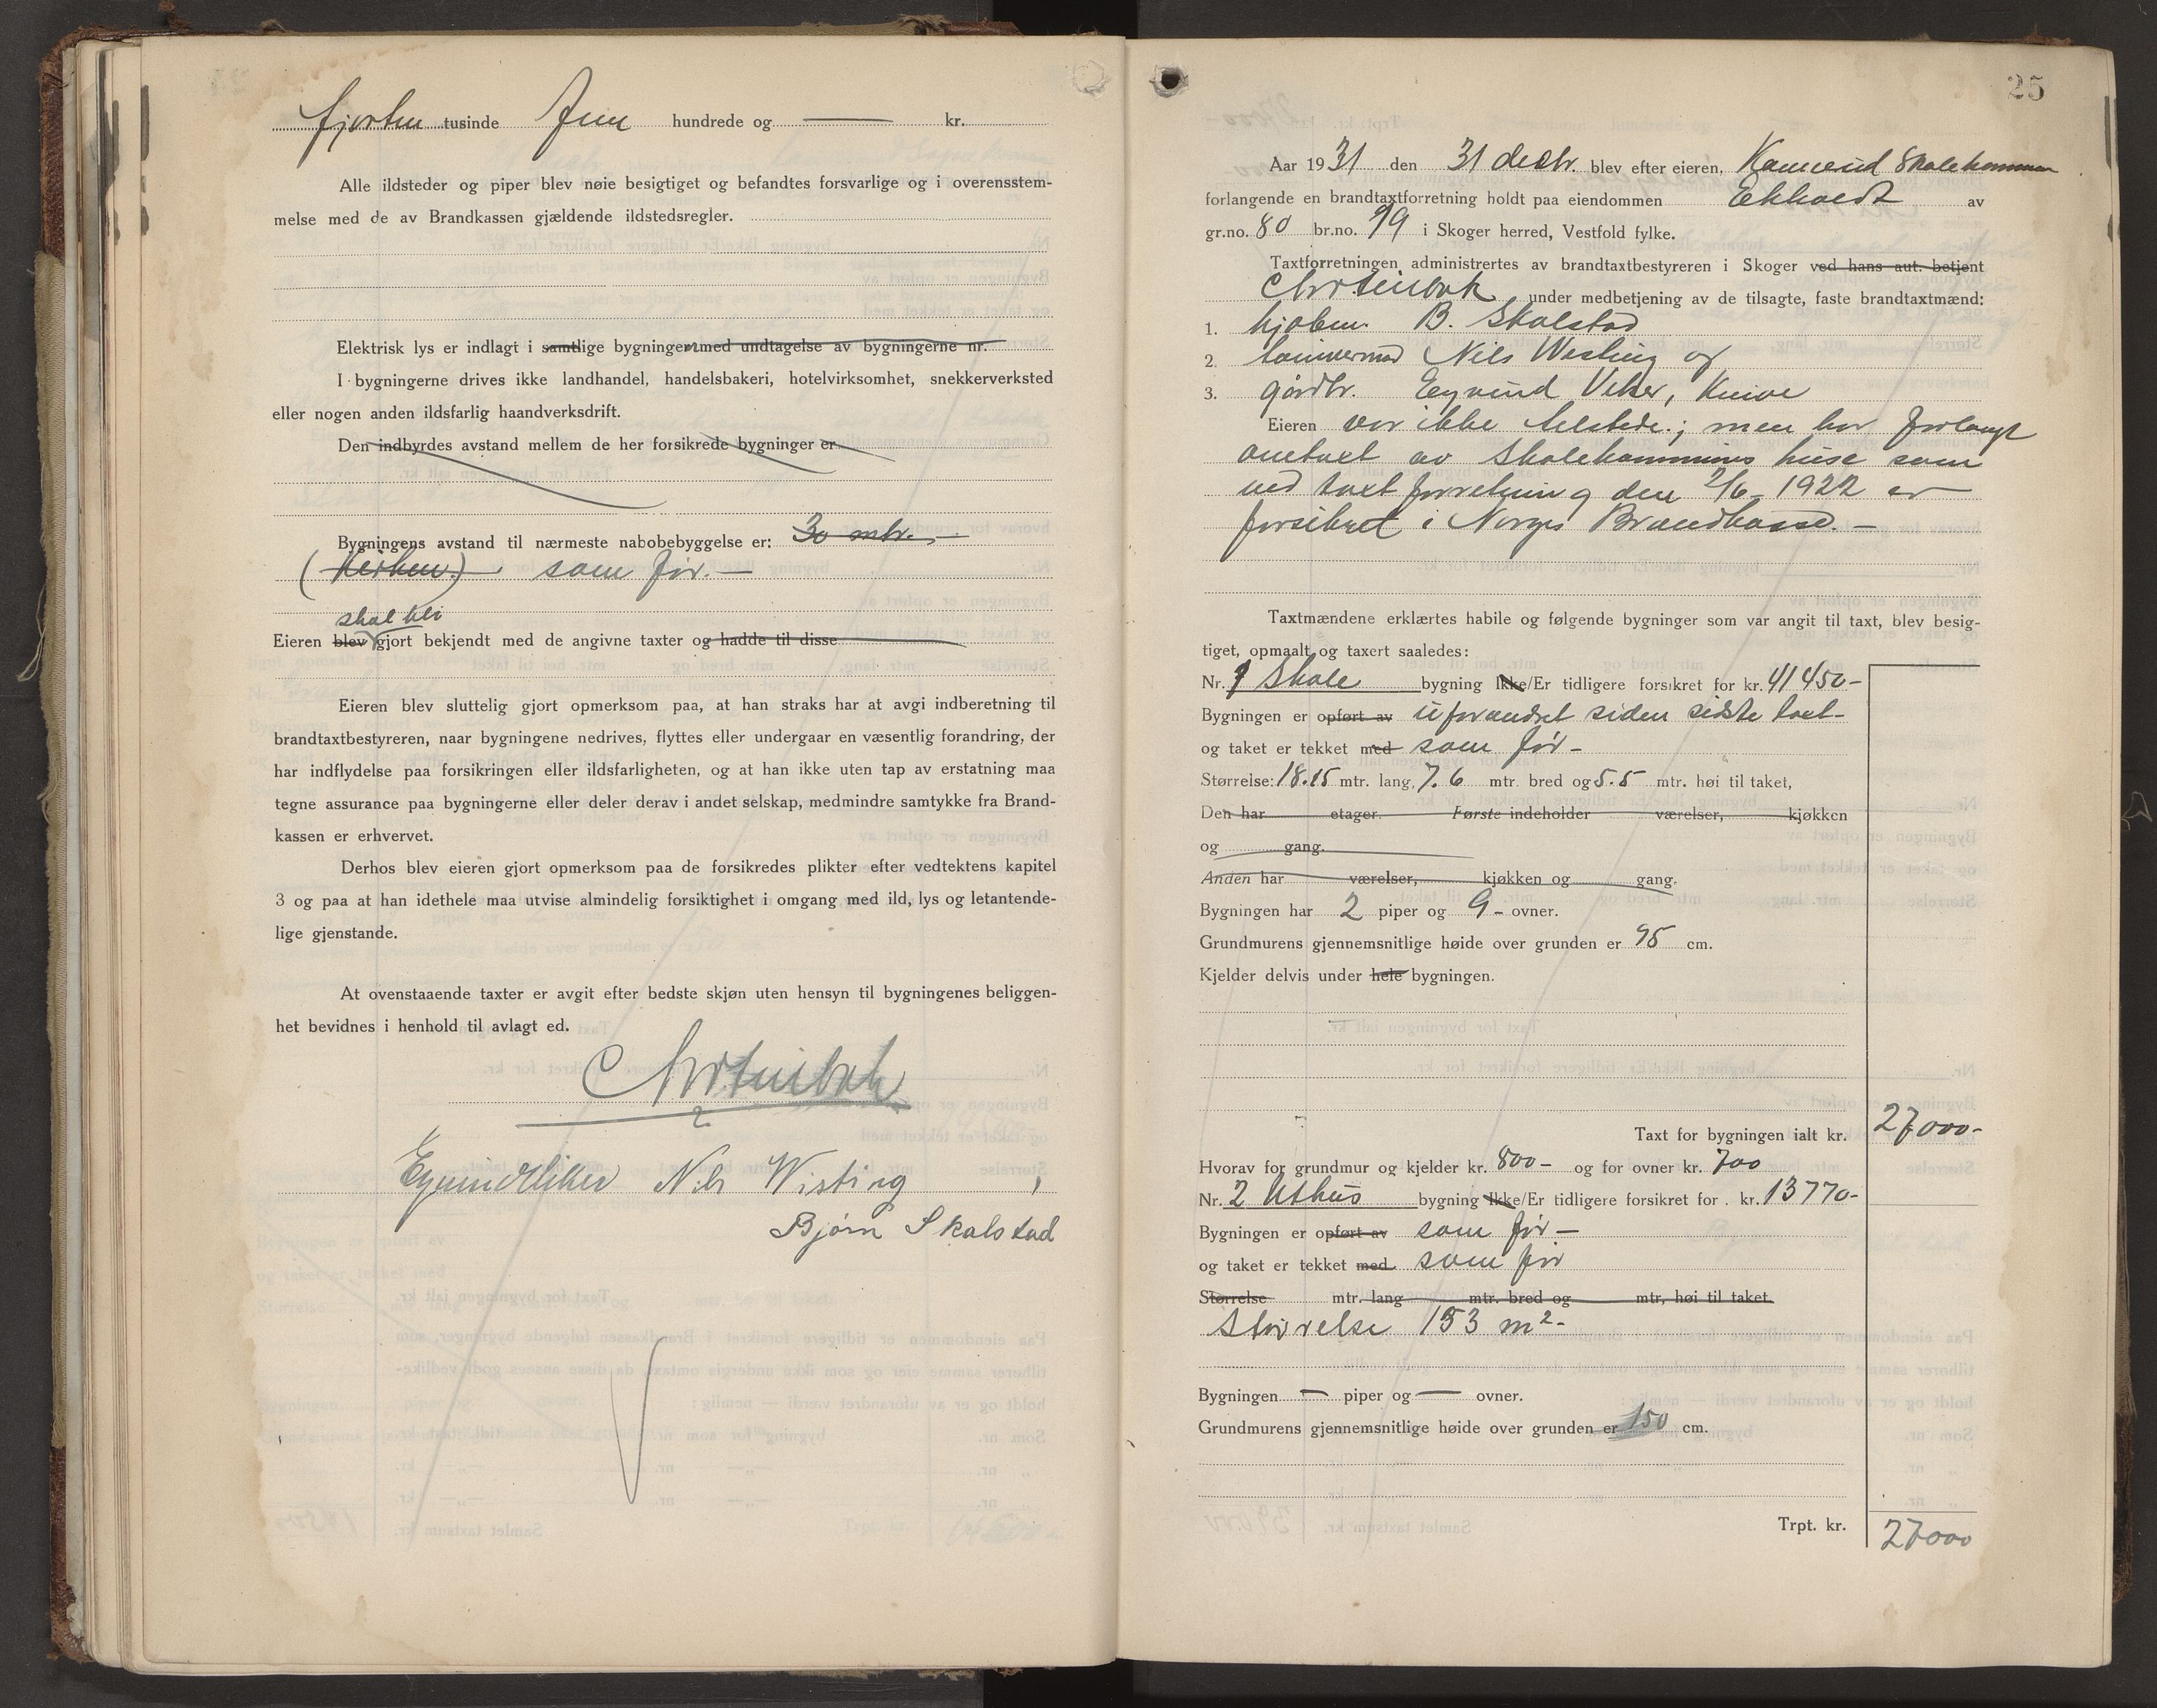 fjorten tusinde fem hundrede og — kr.
Alle ildsteder og piper blev nøie besigtiget og befandtes forsvarlige og i overensstem-
melse med de av Brandkassen gjældende ildstedsregler.
Elektrisk lys er indlagt i samtlige bygninger med undtagelse av bygningerne nr.
I bygningerne drives ikke landhandel, handelsbakeri, hotelvirksomhet, snekkerverksted
eller nogen anden ildsfarlig haandverksdrift.
Den indbyrdes avstand mellem de her forsikrede bygninger er
Bygningens avstand til nærmeste nabobebyggelse er: 30 mtr. —
(Kirken) som før. —
skal bli
Eieren blev gjort bekjendt med de angivne taxter og hadde til disse
Eieren blev sluttelig gjort opmerksom paa, at han straks har at avgi indberetning til
brandtaxtbestyreren, naar bygningene nedrives, flyttes eller undergaar en væsentlig forandring, der
har indflydelse paa forsikringen eller ildsfarligheten, og at han ikke uten tap av erstatning maa
tegne assurance paa bygningerne eller deler derav i andet selskap, medmindre samtykke fra Brand-
kassen er erhvervet.
Derhos blev eieren gjort opmerksom paa de forsikredes plikter efter vedtektens kapitel
3 og paa at han idethele maa utvise almindelig forsiktighet i omgang med ild, lys og letantende-
lige gjenstande.
At ovenstaaende taxter er avgit efter bedste skjøn uten hensyn til bygningenes beliggen-
het bevidnes i henhold til avlagt ed.
Nils Wisting
Bjørn Skalstad
25
Aar 1931 den 31 decbr. blev efter eieren, Skolekommun
forlangende en brandtaxtforretning holdt paa eiendommen Ekholdt av
gr.no. 80 br.no. 79 i Skoger herred, Vestfold fylke.
Taxtforretningen administrertes av brandtaxtbestyreren i Skoger ved hans aut. betjent
under medbetjening av de tilsagte, faste brandtaxtmænd:
1. kjøbm. B. Skalstad
2. tømmermd Nils Wisting og
3. gårdbr. Eyvind Veker, Knive
Eieren var ikke tilstede; men har forlangt
omtaxt av Skolekommunens huse som
ved taxtforretning den 2/6-1922 er
forsikret i Norges Brandkasse. —
Taxtmændene erklærtes habile og følgende bygninger som var angit til taxt, blev besig-
tiget, opmaalt og taxert saaledes:
Nr. 1 Skole bygning Ikke/Er tidligere forsikret for kr. 41450-
Bygningen er opført av uforandret siden sidste taxt-
og taket er tekket med som før-
Størrelse: 18.15 mtr. lang, 7.6 mtr. bred og 5.5 mtr. høi til taket,
Den har etager. Første indeholder værelser, kjøkken
og gang.
Anden har værelser, kjøkken og gang.
Bygningen har 2 piper og 9 - ovner.
Grundmurens gjennemsnitlige høide over grunden er 95 cm.
Kjelder delvis under hele bygningen.
Taxt for bygningen ialt kr. 27000-
Hvorav for grundmur og kjelder kr. 800- og for ovner kr. 700
Nr. 2 Uthus bygning Ikke/Er tidligere forsikret for kr. 13770-
Bygningen er opført av som før —
og taket er tekket med som før
Størrelse mtr. lang mtr. bred og mtr. høi til taket.
Størrelse 153 m²-
Bygningen — piper og — ovner.
Grundmurens gjennemsnitlige høide over grunden er 150 cm.
Trpt. kr. 27000